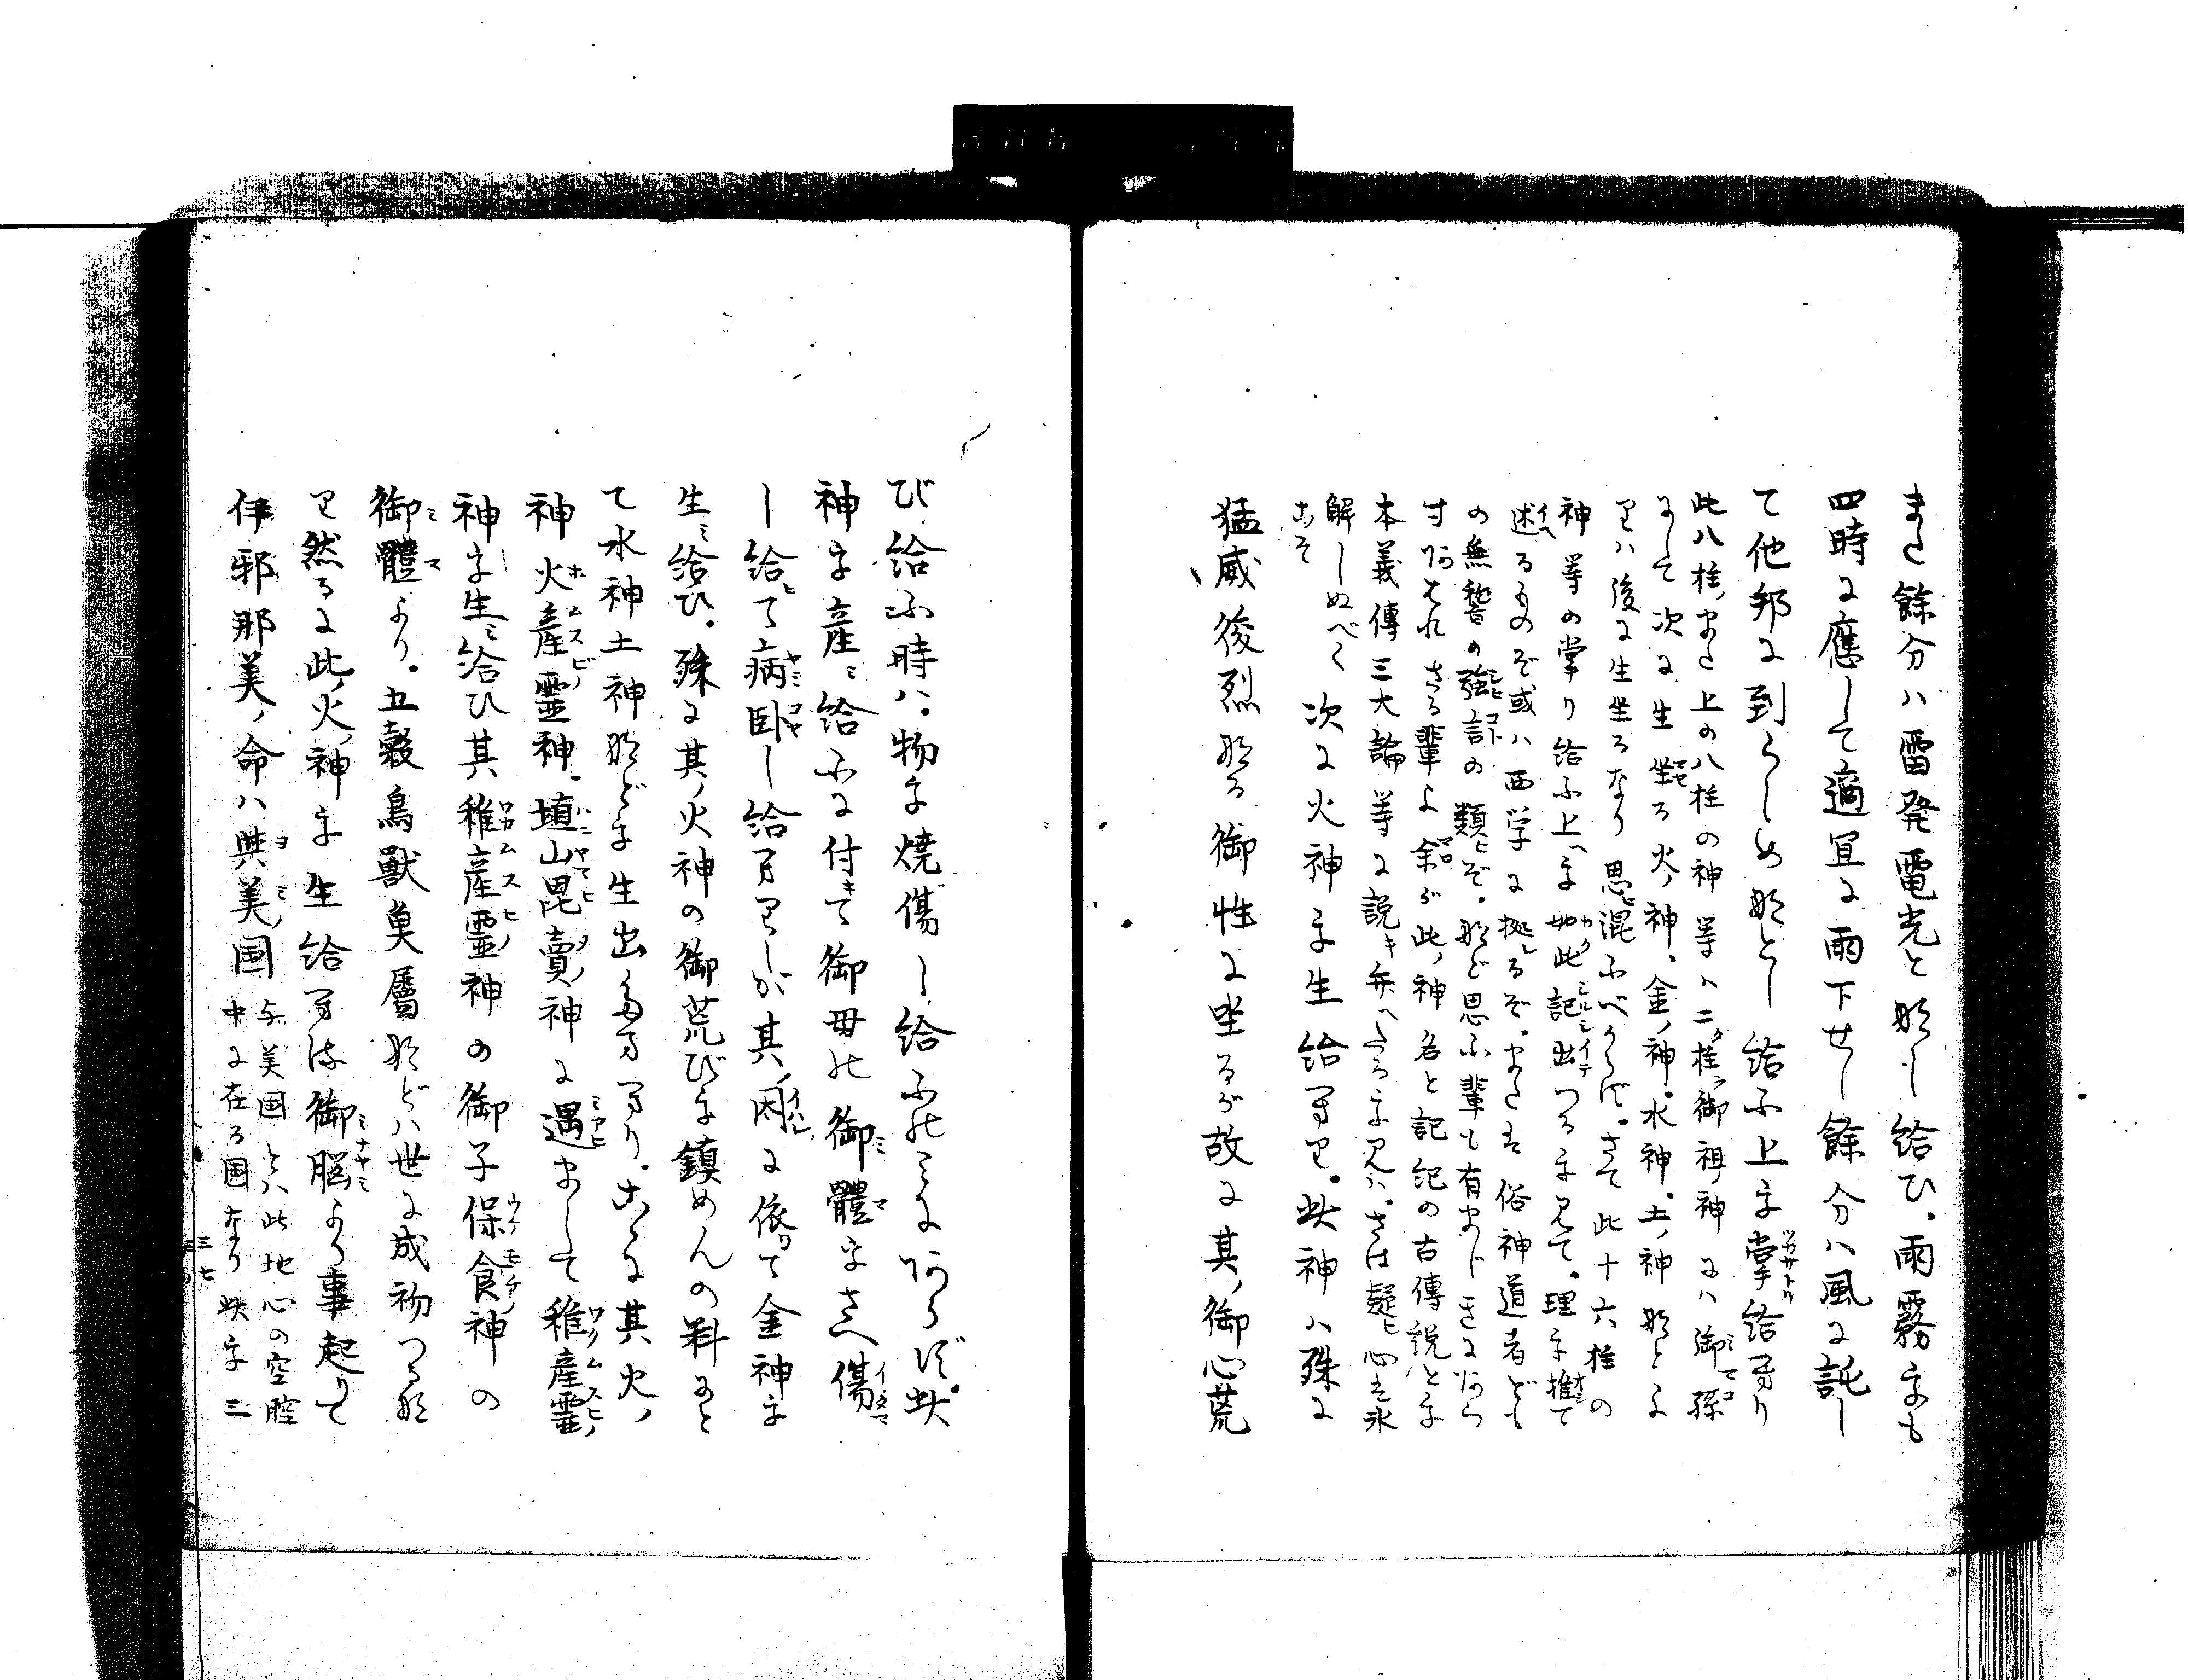 また餘分ハ雷発電光と那し給ひ。雨霧をも
四時に應して適宜に雨下せし餘分ハ風に託し
て他邦に到らしめ那とし給ふ上を掌給へり
此八柱また上の八柱の神等ハ二柱御祖神には御孫
にして次に生坐る火ノ神。金ノ神。水神。土ノ神那とよ
りハ後に生坐るなり思混ふべからず。さて此十六柱の
神等の掌り給ふ上を如此記出つるを見て。理を推て
述るものぞ或ハ西学に拠るぞ。また俗神道者ども
の無誓の強言の類ぞ。那ど思ふ輩も有ましきにあら
本義傳三大論等に説キ弁へたるを見ハ。さは疑心も氷
解しぬべく次に火神を生給へり。此神ハ殊に
こそ
猛威後烈那る御性に坐るが故に其ノ御心荒
び給ふ時ハ。物を焼傷し給ふのみにあらず。此
神を産ミ給ふに付キて御母の御體をさへ傷
し給ヒて病臥し給へりしが其ノ因に依て金神を
生ミ給ひ。殊に其ノ火神の御荒びを鎮めんの料にと
て水神土神那どを生出たまへり。こゝに其火ノ
神火産霊神。埴山毘賣ノ神に遇まして稚産霊ノ
神を生ミ給ひ其稚産霊神の御子保食神の
御體より。五穀鳥獣魚属那どハ世に成初つる那
り然るに此ノ火ノ神を生給へる御脳より事起りて
伊邪那美ノ命ハ與美ノ国
与美国とハ此地心の空腔
中に在る国なり此を三
三七